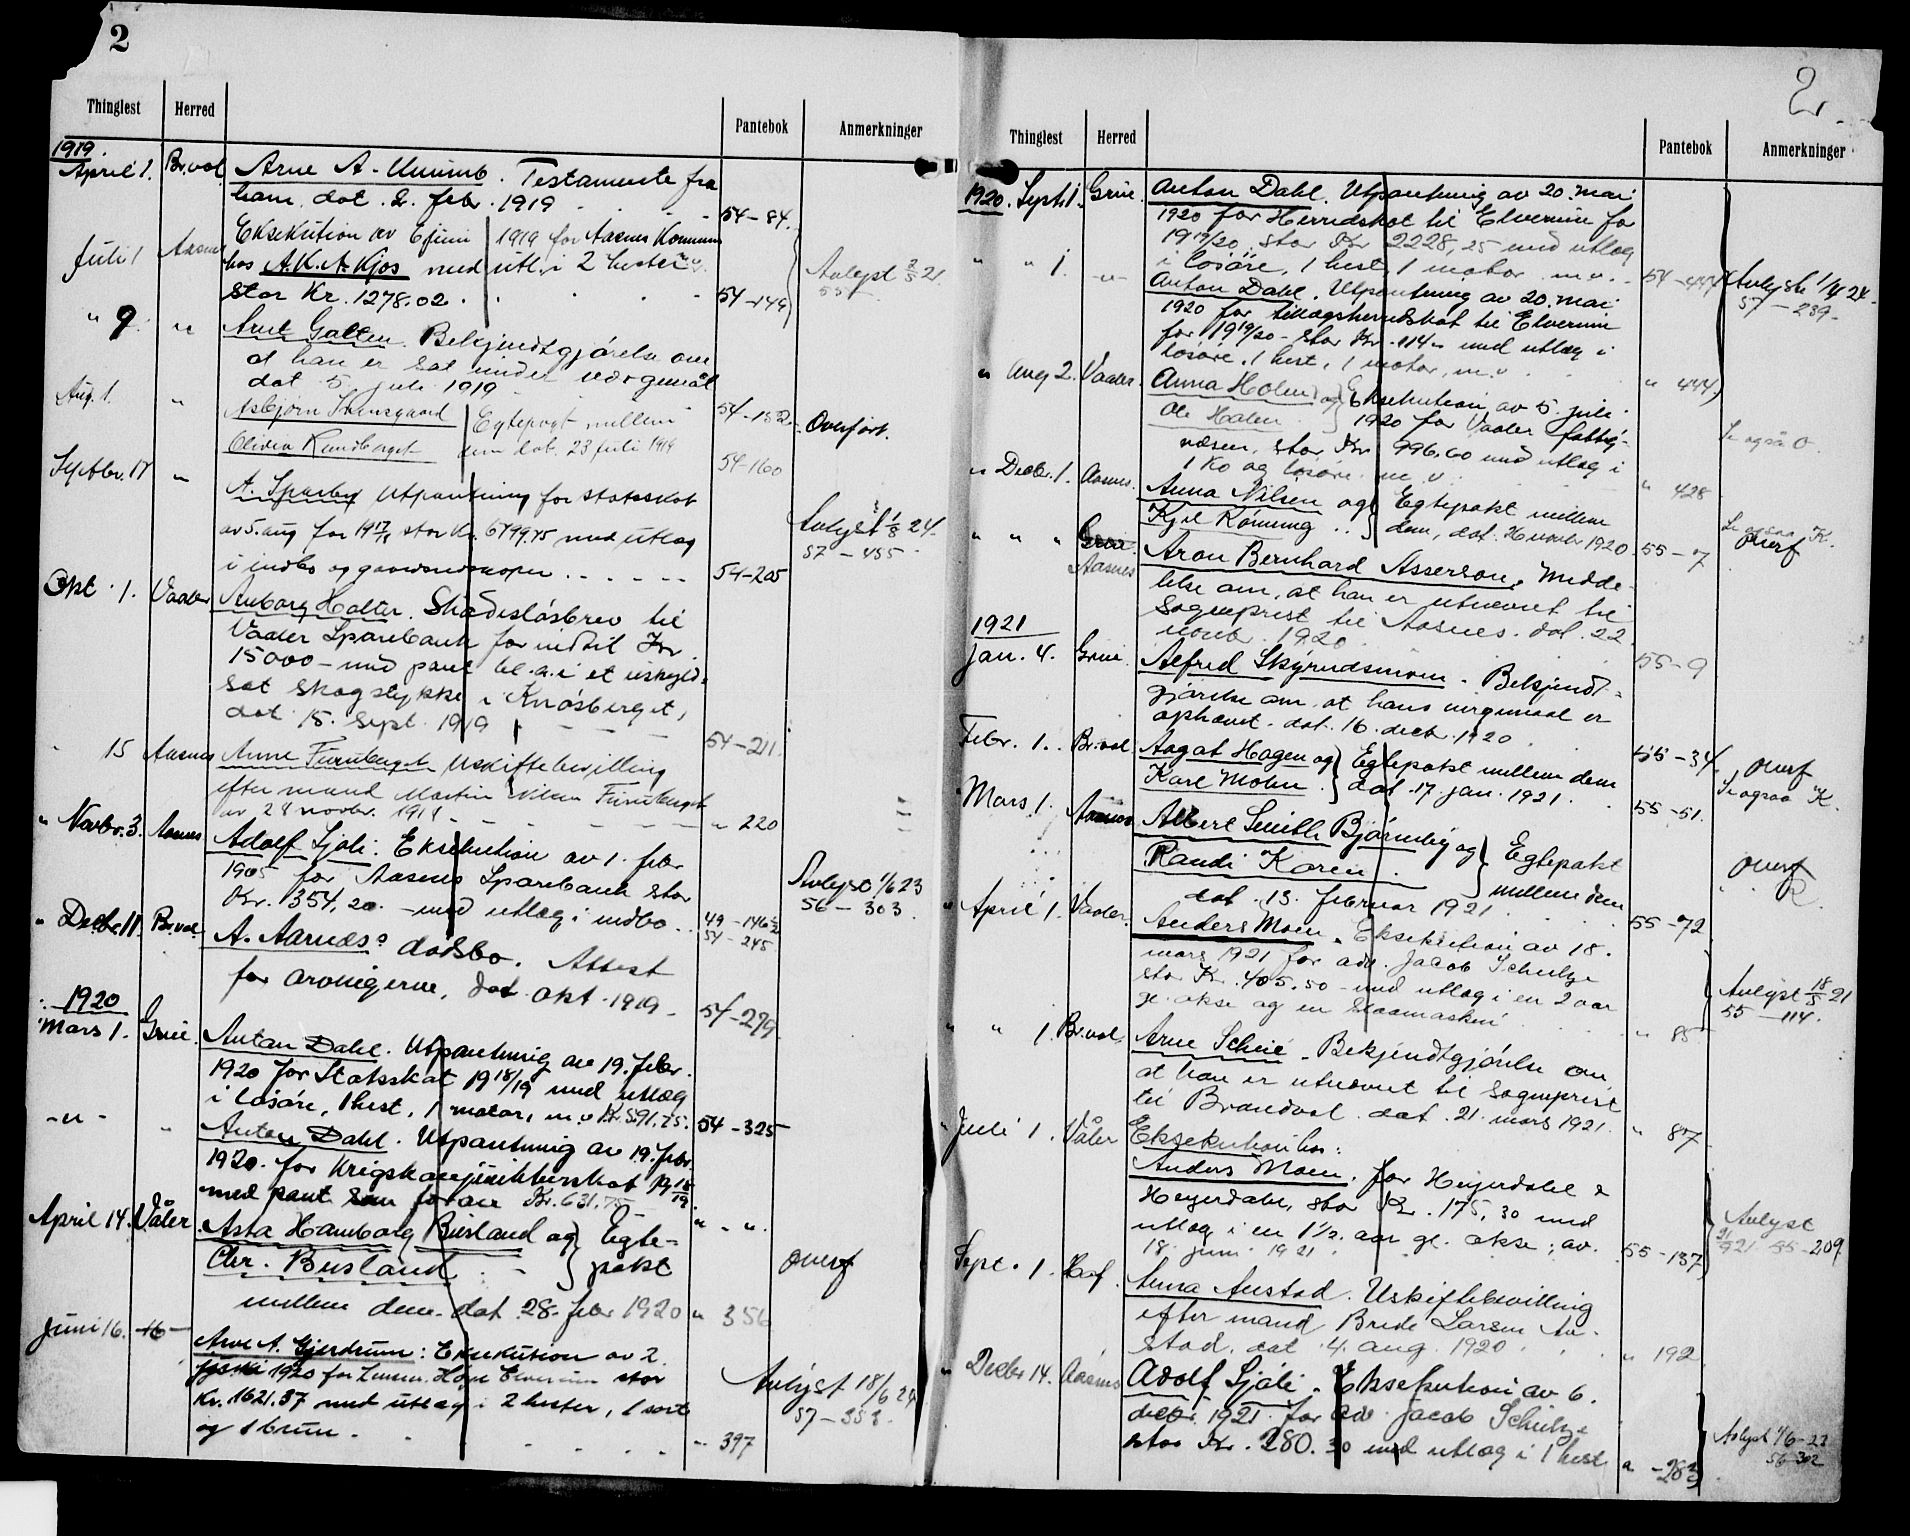 2
Thinglest Herred Pantebok Anmerkninger
1919.
April 1. Br.vol. Arne A. Unumb. Testamente fra
ham, dat. 2. febr. 1919 54-84.
Juli 1 Aasnes Eksekution av 1919 for Aasnes Kommune
hos A.K.A. Kjos med utl. i 2 hester
stor Kr. 1278.02. 54-149 Avlyst 2/5 21.
" 9. " Arne Galten. Bekjendtgjørelse om
at han er sat under værgemål
dat 5. juli 1919 54-152
Aug. 1. " Asbjørn Egtepagt mellem Overført.
Olivia dem dat. 23 juli 1919 54-160
Septbr. 17 " A. Sparby Utpantning for statsskat
av 5. aug for 19 17/18, stor Kr. 6799.75 med utlæg
i indbo og gaardsredskaper 54-205 Avlyst 1/8 24.
57-455.
Okt. 1. Vaaler Anborg Holter. Skadesløsbrev til
Vaaler Sparebank for indtil Kr.
15000- med pant bl.a. i et uskyld-
sat skogstykke i Knøsberget,
dat 15. sept. 1919 54-211.
" 15 Aasnes Anne Furuberget Uskiftebevilling
efter mand Martin Nilsen Furuberget
av 28 novbr. 1918 " 220
" Novbr. 3. Aasnes Adolf Sjøli: Eksekution av 1. febr
1905 for Aasnes Sparebank stor
Kr. 1354,20. - med utlæg i indbo 49-146
54-245 Avlyst 1/6 23
56-303.
" Decbr. 11. Br.vol. A. Aarnæs' dødsbo. Attest
for arvingerne, dat okt. 1919. 54-299
1920
Mars 1. Grue. Anton Dahl. Utpantning av 19. febr.
1920 for Statsskat 1918/19 med utlæg
i løsøre, 1 hest, 1 motor, m.v. Kr. 591.75. 54-325
-"- " Anton Dahl. Utpantning av 19. febr.
1920. for Krigskonjunkturskat
med pant som foran Kr. 631.75 " - "
April 14. Våler Asta Hamborg Busland og } Egte-
Chr. Busland } pakt overf
mellem dem. dat. 28. febr 1920 " 356
Juni 16. Arne A. Gjerdrum: Eksekution av 2.
1920 for Elverum stor
Kr. 1621.37 med utlæg i 2 hester, 1 sort
og 1 brun. " 397 Avlyst 18/6 24
57-353.
2.
Thinglest Herred Pantebok Anmerkninger
1920. Septb 1. Grue. Anton Dahl. Utpantning av 20. mai
1920 for Herredskat til Elverum for
1919/20. stor Kr 2228,25 med utlæg
i løsøre, 1 hest, 1 motor m.v. 54-444 Avlyst 1/4 24.
57-239-
" " 1. -"- Anton Dahl. Utpantning av 20. mai
1920 for tillægsherredskat til Elverum
for 1919/20 - stor Kr. 114- med utlæg i
løsøre, 1 hest, 1 motor, m.v " 444
" Aug 2. Vaaler. Anna Holen } og } Eksekution av 5. juli
Ole Holen. } 1920 for Vaaler fattig-
væsen, stor Kr 996.60 med utlæg i
1 ko og løsøre m.v. " 428 Se også O.
" Decbr. 1. Aasnes. Anna Nilsen og } Egtepakt mellem
Kjel Rønning } dem, dat. 4 novbr 1920 55-7 Se ogsaa K.
overf
" " " Aasnes Aron Bernhard Asserson. Medde-
lelse om, at han er utnævnt til
Sogneprest til Aasnes. dat. 22
novbr. 1920. 55-9
1921
Jan. 4. Grue. Alfred Skyrudsmoen. Bekjendt-
gjørelse om, at hans vergemaal er
ophævet. dat. 16. decbr. 1920. 55-34
Febr. 1. Br.vol. Aagot Hagen og } Egtepakt mellem dem
Karl Mohn. } dat. 17. jan. 1921. 55-51. overf
Se ogsaa K.
Mars 1. Aasnes Albert Smith Bjørneby og } Egtepakt
Randi Karen. } mellem dem
dat. 13. februar 1921. 55-72 overf
R
" April 1. Vaaler. Anders Moen. Eksekution av 18.
mars 1921 for adv. Jacob Schulze
stor Kr. 405.50 - med utlæg i en 2 aar
gl. okse og en slaamaskin " 85 Avlyst 18/5 21
55-114.
" " 1. Br.vol. Arne Scheie. Bekjendtgjørelse om,
at han er utnævnt til Sogneprest
til Brandvol. dat. 21. mars 1921. " 87
" Juli 1. Våler Eksekution hos:
Anders Moen. for Heyerdahl &
Heyerdahl, stor Kr. 175,30 med
utlæg i en 1½ aar gl. okse; av.
18. juni 1921. 55-137 Avlyst
21/9 21 55-209.
Sept. 1. Hof. Anna Austad. Uskiftebevilling
efter mand Brede Larsen Au-
stad, dat. 4. aug. 1920 " 192
" Decbr 14. Aasnes Adolf Sjøli. Eksekution av 6.
decbr. 1921. for adv. Jacob Schulze
stor Kr. 280.30 med utlæg i 1 hest " -283 Avlyst 1/6-23
56-302